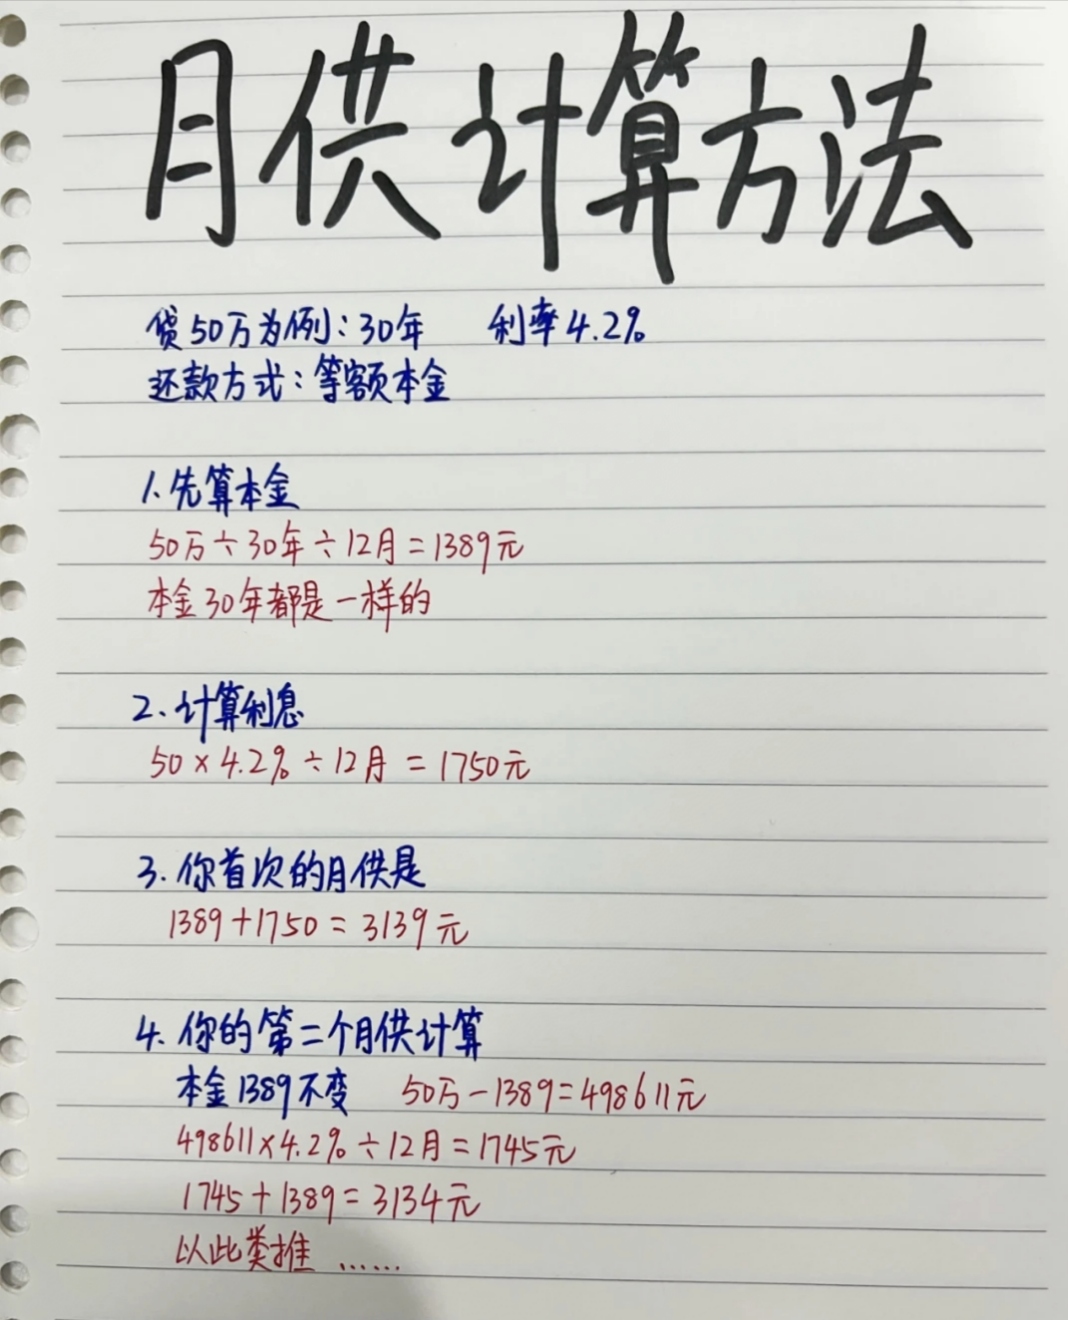 月供计算方法
贷50万为例:30年 利率4.2%
还款方式:等额本金
1.先算本金
50万÷30年÷12月=1389元
本金30年都是一样的
2.计算利息
50×4.2%÷12月=1750元
3.你首次的月供是
1389+1750=3139元
4.你的第二个月供计算
本金1389不变 50万-1389=498611元
498611×4.2%÷12月=1745元
1745+1389=3134元
以此类推……